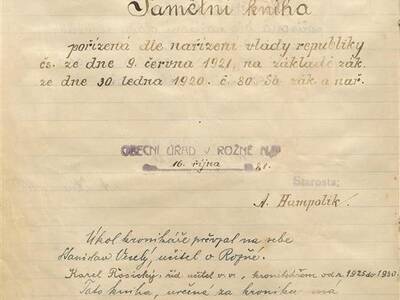 Pamětní kniha
pořízená dle nařízení vlády republiky
čs. ze dne 9. června 1921, na základě zák.
ze dne 30. ledna 1920. č. 80. Sb zák. a nař.
OBECNÍ ÚŘAD V ROŽNÉ
16. října 21.
Starosta:
A. Humpolík.
Úkol kronikáře převzal na sebe
Stanislav Veselý, učitel v Rožné.
Karel Kosický, říd. učitel v. v., kronikářem od r. 1925 do 1930.
Tato kniha, určená za kroniku má